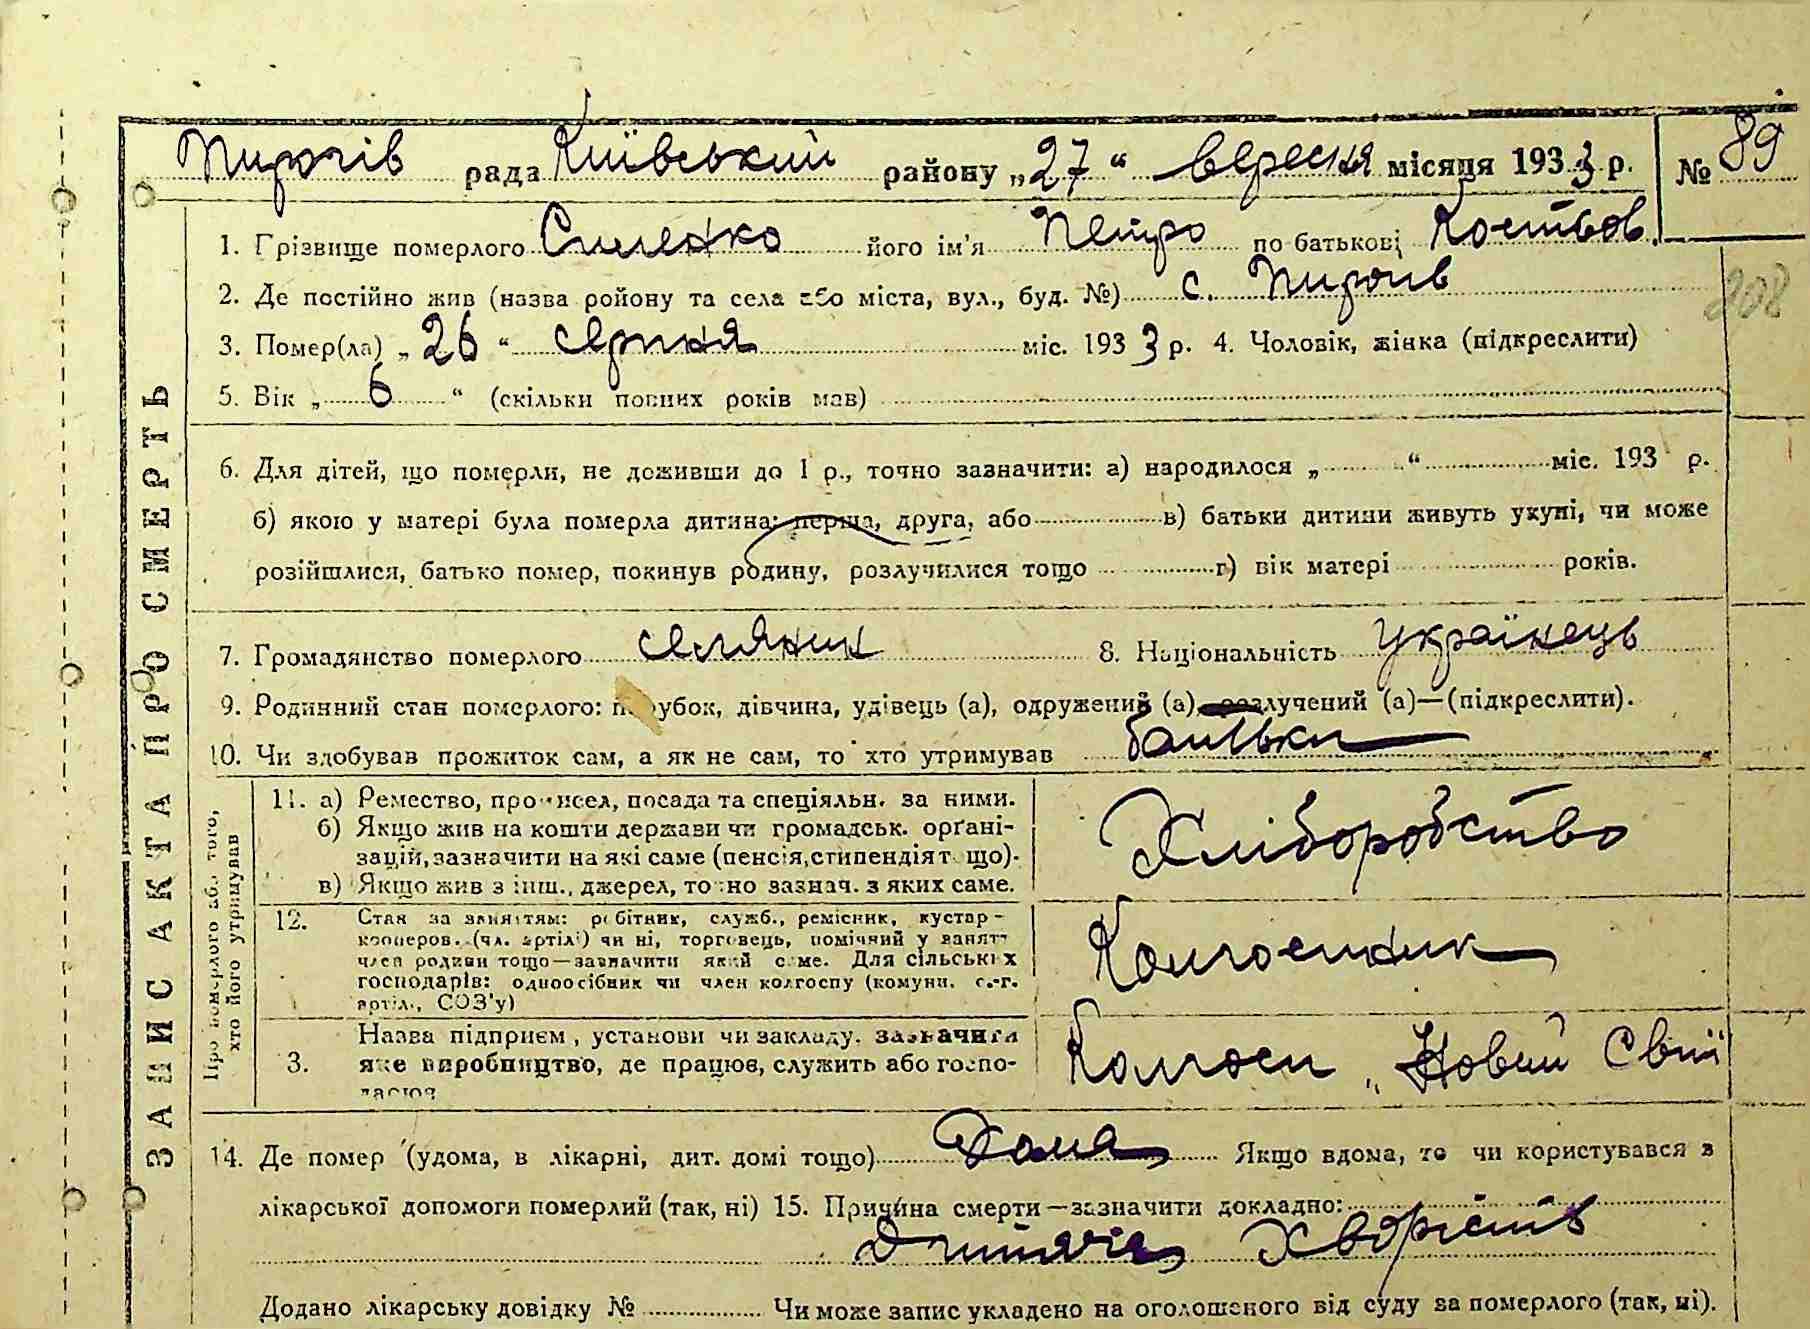 Пирогів рада Київський району „27“ вересня місяця 1933 р. № 89
1. Грізвище померлого його ім'я Петро по батькові Костьов.
2. Де постійно жив (назва ройону та села або міста, вул., буд. №) с. Пирогів
208
3. Помер(ла) „26“ серпня міс. 1933 р. 4. Чоловік, жінка (підкреслити)
5. Вік „6“ (скільки повних років мав)
6. Для дітей, що померли, не доживши до 1 р., точно зазначити: а) народилося „ “ міс. 193 р.
б) якою у матері була померла дитина: перша, друга, або в) батьки дитини живуть укупі, чи може
розійшлися, батько помер, покинув родину, розлучилися тощо г) вік матері років.
7. Громадянство померлого селянин 8. Національність українець
9. Родинний стан померлого: парубок, дівчина, удівець (а), одружений (а), розлучений (а)—(підкреслити).
10. Чи здобував прожиток сам, а як не сам, то хто утримував батьки
ЗАПИС АКТА ПРО СМЕРТЬ
Про померлого або того,
хто його утримував
11. а) Ремество, промисел, посада та спеціяльн. за ними.
б) Якщо жив на кошти держави чи громадськ. орґані-
зацій, зазначити на які саме (пенсія, стипендія т. що).
в) Якщо жив з інш. джерел, точно зазнач. з яких саме.
Хліборобство
12. Стан за заняттям: робітник, служб., ремісник, кустар-
кооперов. (чл. артілі) чи ні, торговець, помічний у занятт
член родини тощо—зазначити який саме. Для сільських
господарів: одноосібник чи член колгоспу (комуни, с.-г.
артіл., СОЗ'у)
Колгоспник
3. Назва підприєм, установи чи закладу, зазначити
яке виробництво, де працює, служить або госпо-
дарює
Колгосп „Новий Світ
14. Де помер (удома, в лікарні, дит. домі тощо) Дома Якщо вдома, то чи користувався з
лікарської допомоги померлий (так, ні) 15. Причина смерти—зазначити докладно:
Дитяча Хворість
Додано лікарську довідку № Чи може запис укладено на оголошеного від суду за померлого (так, ні).